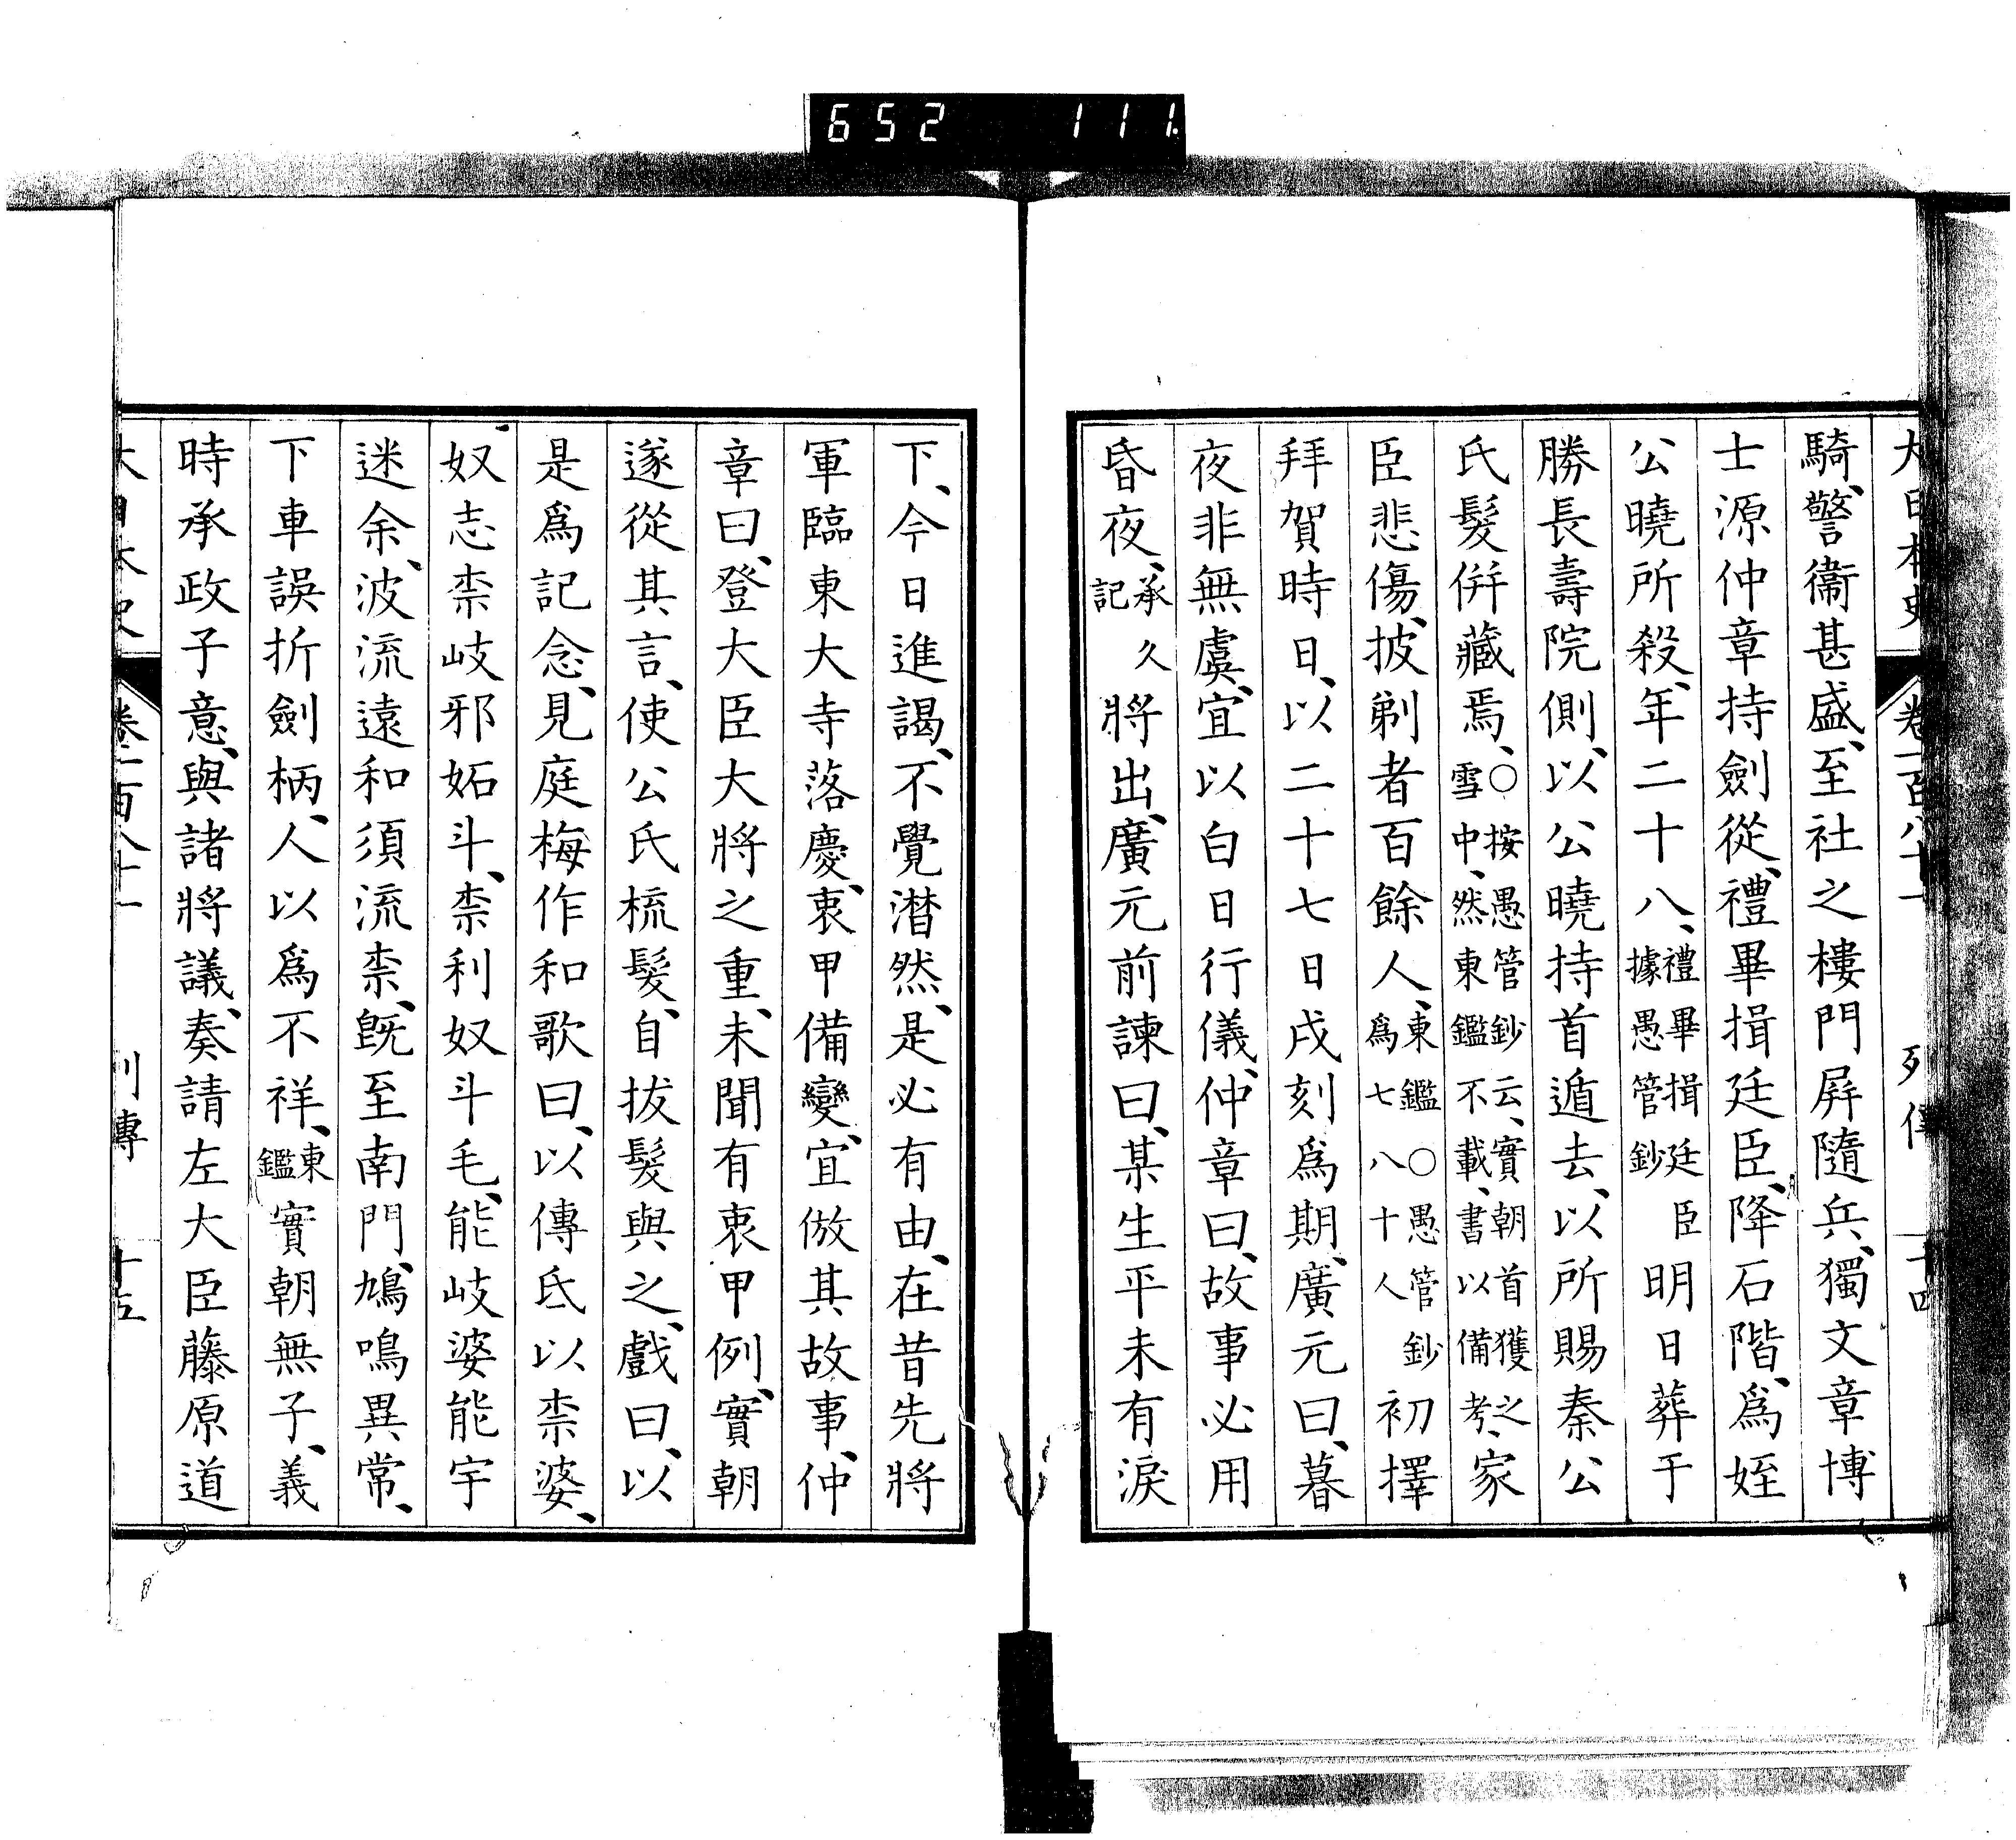 652 111.
大日本史 卷一百八十一 列傳 十四
騎、警衞甚盛、至社之樓門屛隨兵、獨文章博
士源仲章持劍從、禮畢揖廷臣、降石階、爲姪
公曉所殺、年二十八、禮畢揖廷臣據愚管鈔明日葬于
勝長壽院側、以公曉持首遁去、以所賜秦公
氏髮併藏焉、○按愚管鈔云、實朝首獲之雪中、然東鑑不載、書以備考、家
臣悲傷、披剃者百餘人、東鑑○愚管鈔爲七八十人初擇
拜賀時日、以二十七日戌刻爲期、廣元曰、暮
夜非無虞、宜以白日行儀、仲章曰、故事必用
昏夜、承久記將出、廣元前諫曰、某生平未有淚
下、今日進謁、不覺潸然、是必有由、在昔先將
軍臨東大寺落慶、衷甲備變、宜倣其故事、仲
章曰、登大臣大將之重、未聞有衷甲例、實朝
遂從其言、使公氏梳髮、自拔髮與之、戲曰、以
是爲記念、見庭梅作和歌曰、以傳氐以柰婆、
奴志柰岐邪妬斗、柰利奴斗毛、能岐婆能宇
迷余、波流遠和須流柰、既至南門、鳩鳴異常、
下車誤折劍柄、人以爲不祥、東鑑實朝無子、義
時承政子意、與諸將議、奏請左大臣藤原道
大日本史 卷一百八十一 列傳 十五